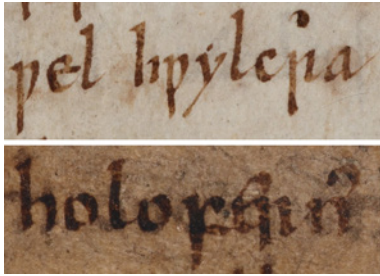 ƿel hƿẏlcra
holofern̄